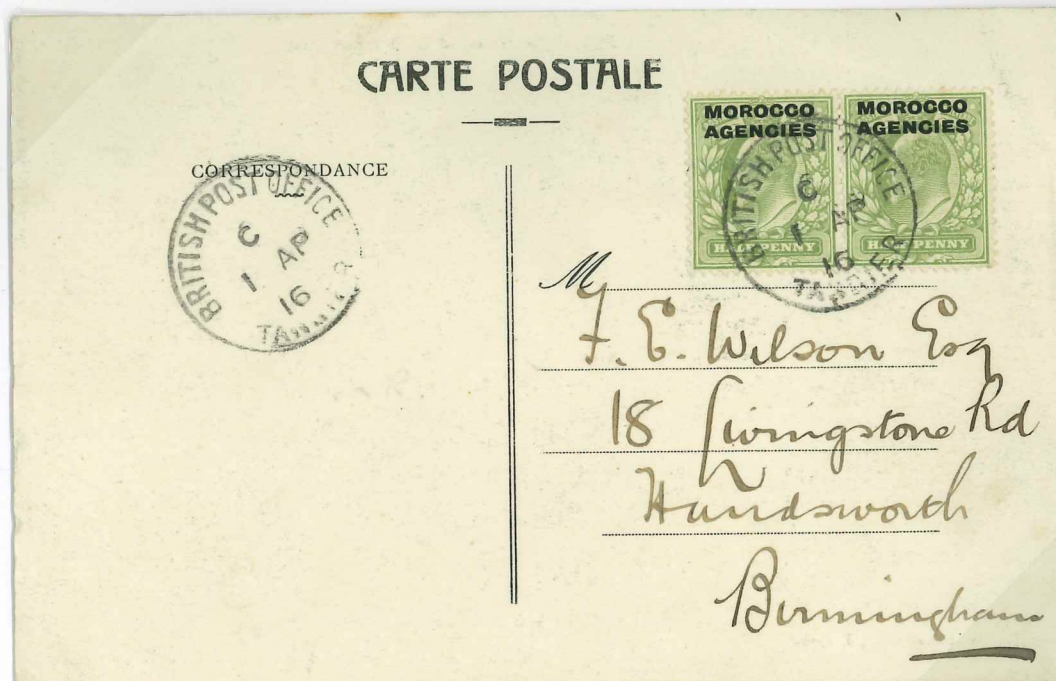 CARTE POSTALE
CORRESPONDANCE
BRITISH POST OFFICE
C
1 AP
16
TANGIER
MOROCCO AGENCIES
HALF PENNY
MOROCCO AGENCIES
HALF PENNY
BRITISH POST OFFICE
C
1 AP
16
TANGIER
M
F. E. Wilson Esq
18 Livingstone Rd
Handsworth
Birmingham